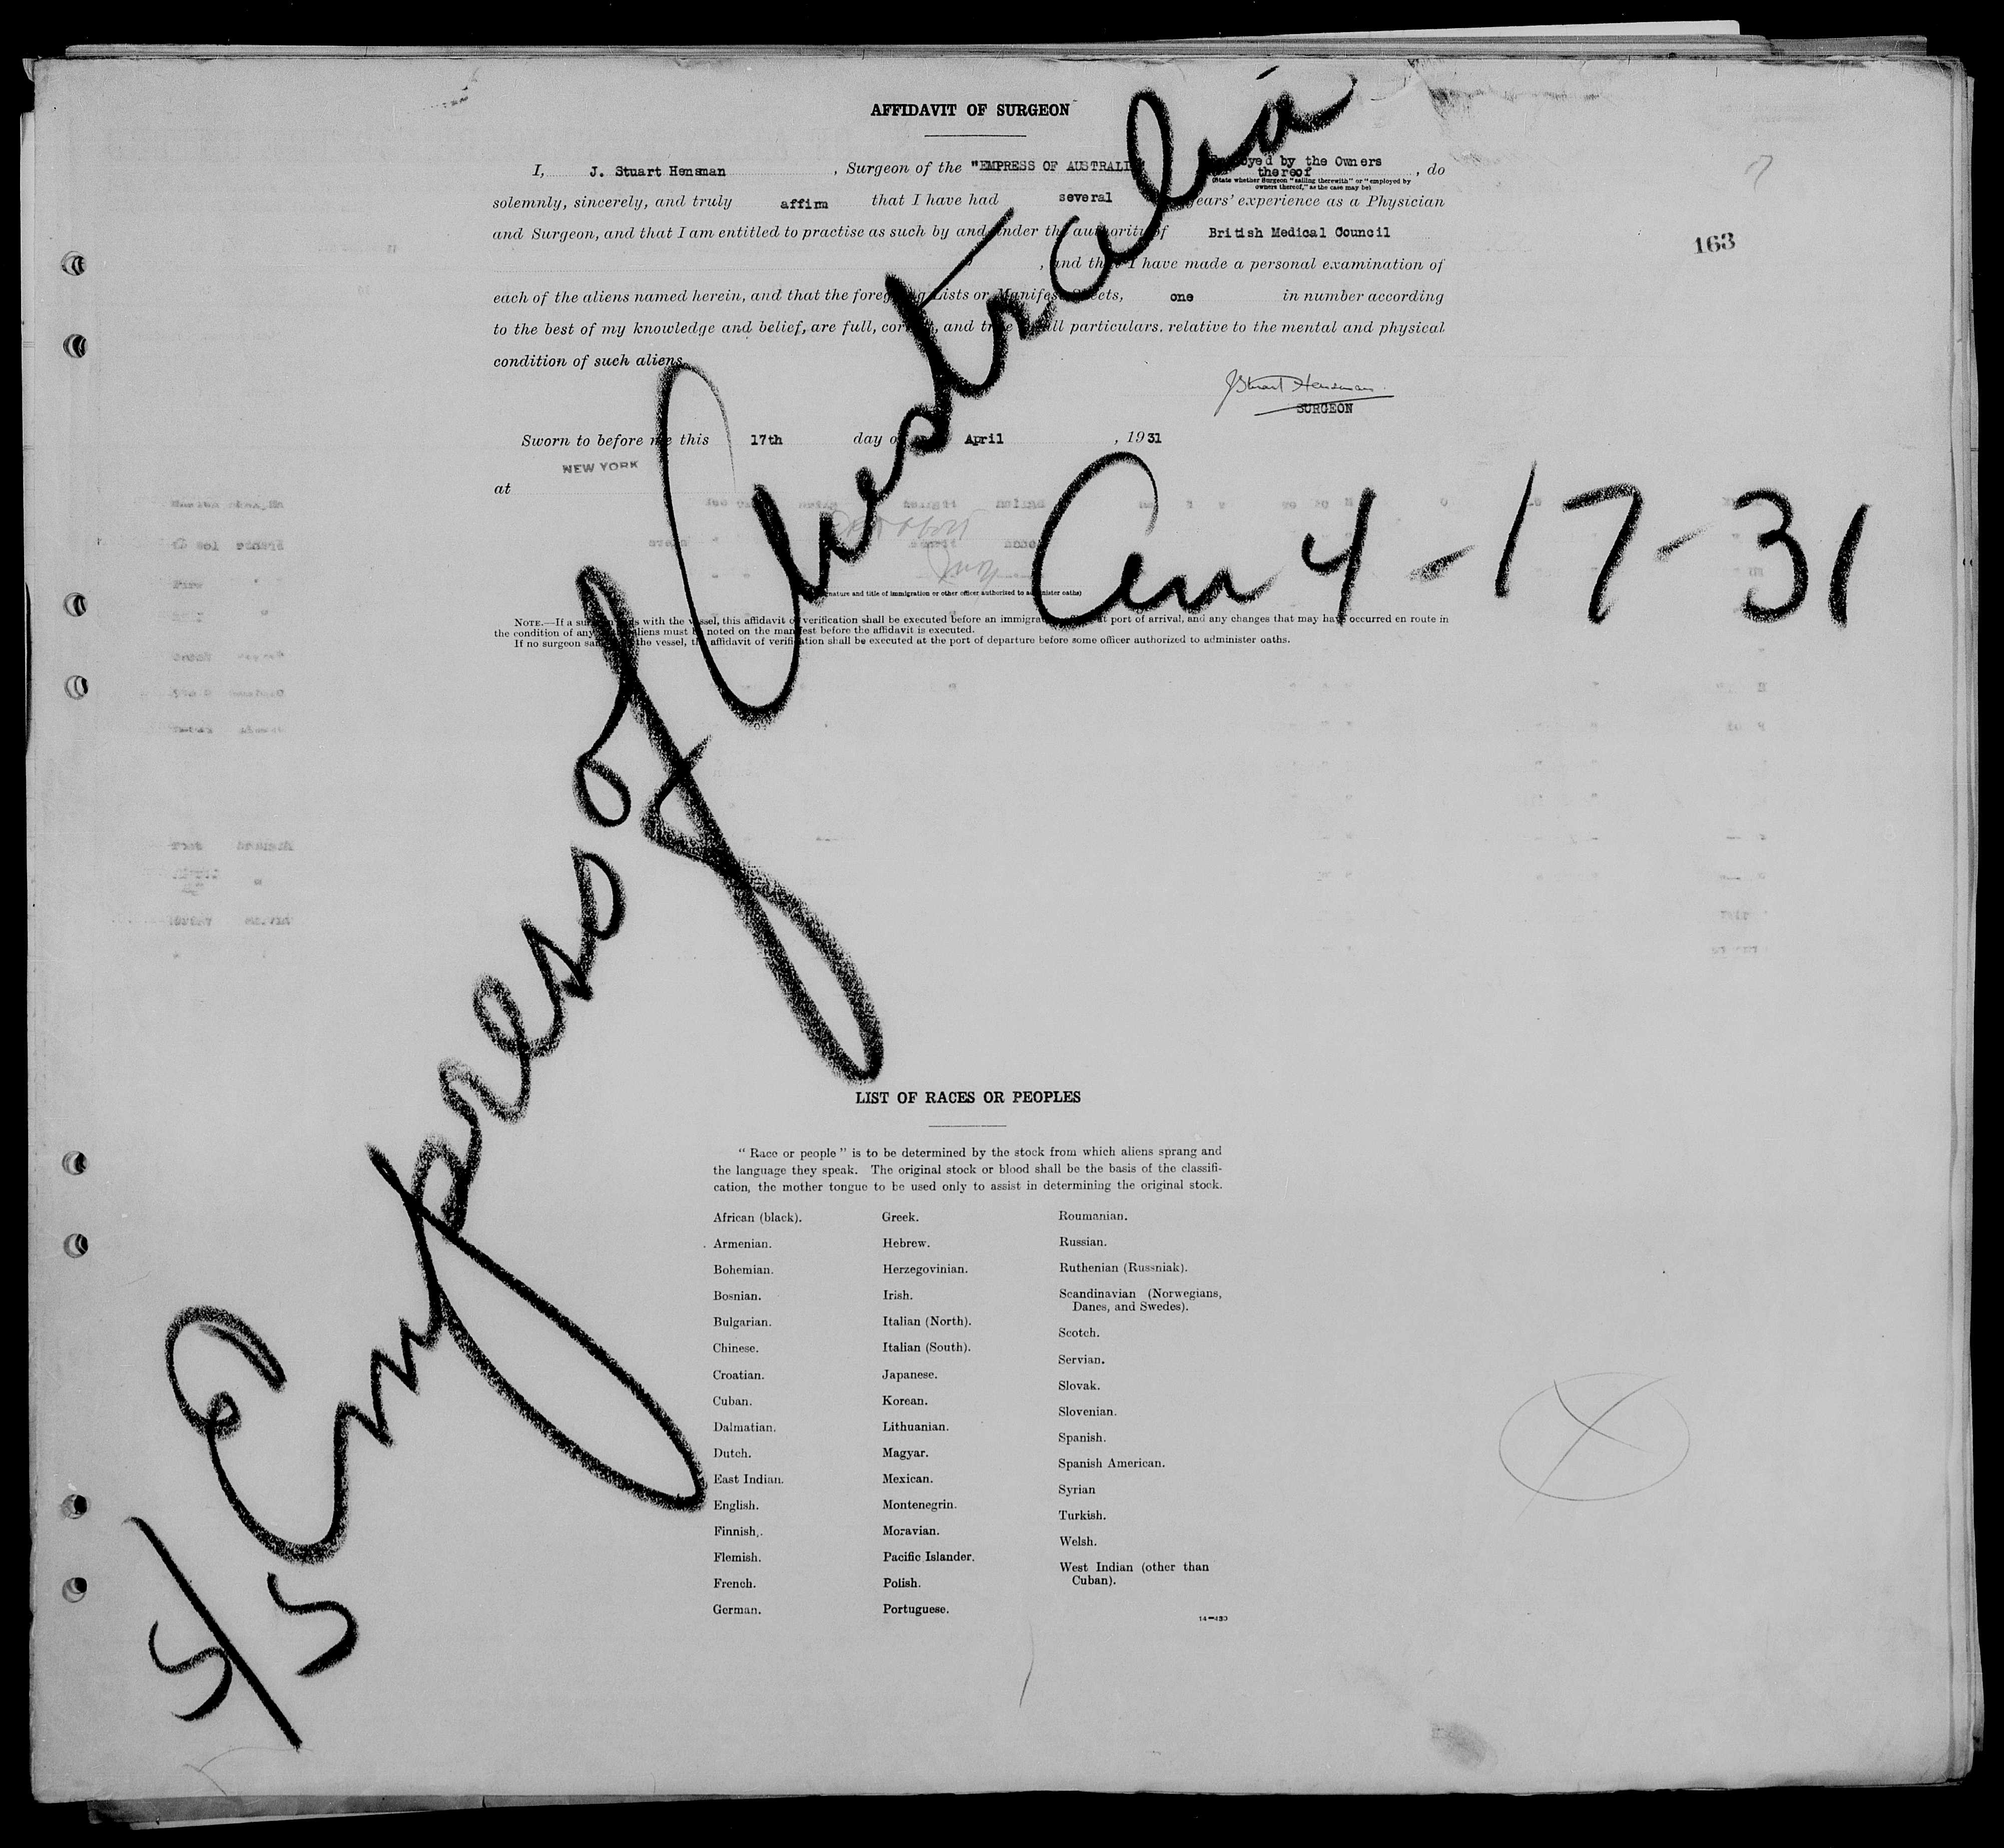 AFFIDAVIT OF SURGEON
I, J. Stuart Hensman, Surgeon of the "EMPRESS OF AUSTRALI oyed by the Owners thereof, do
(State whether Surgeon "sailing therewith" or "employed by owners thereof," as the case may be)
solemnly, sincerely, and truly affirm that I have had several years' experience as a Physician
and Surgeon, and that I am entitled to practise as such by and under the authority of British Medical Council
, and that I have made a personal examination of
163
each of the aliens named herein, and that the foregoing Lists or Manifest ects, one in number according
to the best of my knowledge and belief, are full, correct, and true in all particulars. relative to the mental and physical
condition of such aliens.
J Stuart Hensman
SURGEON
Sworn to before me this 17th day of April, 1931
NEW YORK
at
(Signature and title of immigration or other officer authorized to administer oaths)
NOTE.—If a surgeon sails with the vessel, this affidavit of verification shall be executed before an immigrat at port of arrival, and any changes that may have occurred en route in
the condition of any aliens must be noted on the manifest before the affidavit is executed.
If no surgeon sa the vessel, the affidavit of verification shall be executed at the port of departure before some officer authorized to administer oaths.
S/S Empress of Australia
Arr 4-17-31
LIST OF RACES OR PEOPLES
"Race or people" is to be determined by the stock from which aliens sprang and
the language they speak. The original stock or blood shall be the basis of the classifi-
cation, the mother tongue to be used only to assist in determining the original stock.
African (black).
Armenian.
Bohemian.
Bosnian.
Bulgarian.
Chinese.
Croatian.
Cuban.
Dalmatian.
Dutch.
East Indian.
English.
Finnish.
Flemish.
French.
German.
Greek.
Hebrew.
Herzegovinian.
Irish.
Italian (North).
Italian (South).
Japanese.
Korean.
Lithuanian.
Magyar.
Mexican.
Montenegrin.
Moravian.
Pacific Islander.
Polish.
Portuguese.
Roumanian.
Russian.
Ruthenian (Russniak).
Scandinavian (Norwegians,
Danes, and Swedes).
Scotch.
Servian.
Slovak.
Slovenian.
Spanish.
Spanish American.
Syrian
Turkish.
Welsh.
West Indian (other than
Cuban).
14—430